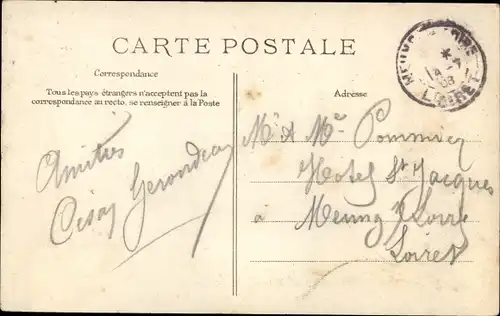 CARTE POSTALE
Correspondance
Tous les pays étrangers n'acceptent pas la
correspondance au recto, se renseigner à la Poste
Adresse
LOIRET
Amitiés
Mr & Mme
Hotel St Jacques
à Meung s/Loire
Loiret